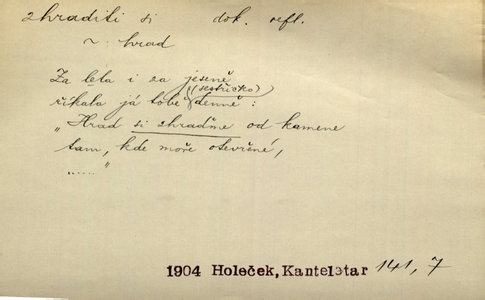 zhraditi si dok. refl.
~ hrad
Za léta i za jeseně
(sestřičko)
říkala já tobě denně:
"Hrad si zhraďme od kamene
tam, kde moře otevřené,
....."
1904 Holeček, Kanteletar 141, 7